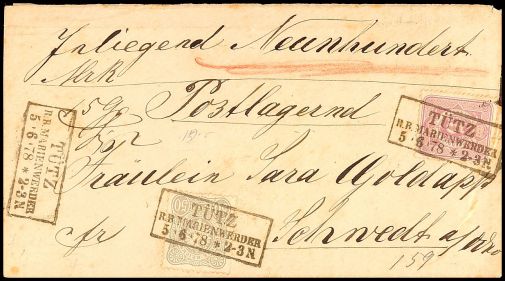 Inliegend Neunhundert
Mrk
Postlagernd
Fräulein Sara Goldapp
fr
Schwedt a/Oder
159
TÜTZ
R.B.MARIENWERDER
5 6 78 * 2-3N
TÜTZ
R.B.MARIENWERDER
5 6 78 * 2-3N
TÜTZ
R.B.MARIENWERDER
5 6 78 * 2-3N
50